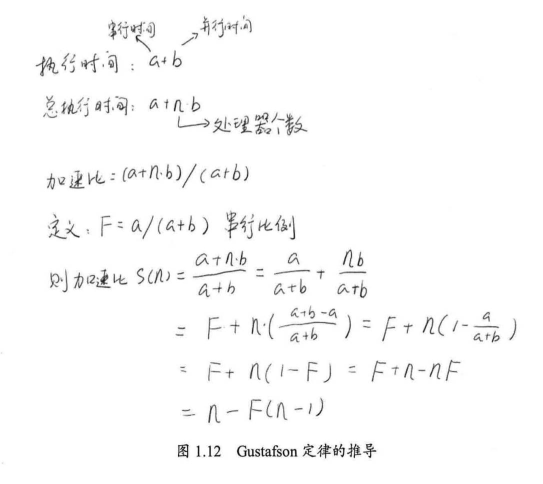 串行时间 并行时间
执行时间：a+b
总执行时间：a+n·b
处理器个数
加速比=(a+n·b)/(a+b)
定义：F=a/(a+b) 串行比例
则加速比 S(n)=\frac{a+n·b}{a+b} = \frac{a}{a+b} + \frac{nb}{a+b}
= F+n·(\frac{a+b-a}{a+b}) = F+n(1-\frac{a}{a+b})
= F+n(1-F) = F+n-nF
= n-F(n-1)
图 1.12 Gustafson 定律的推导